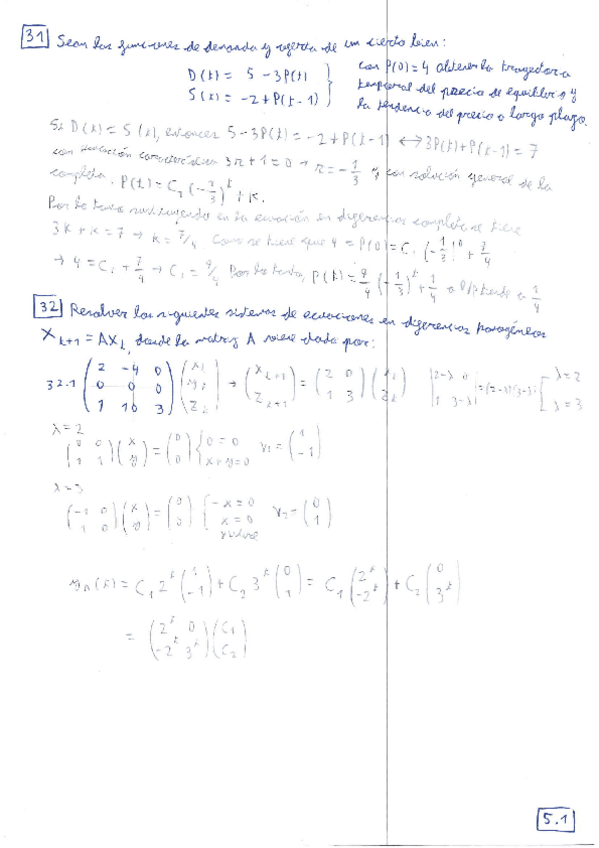 31 Sean las funciones de demanda y oferta de un cierto bien:
D(t) = 5 - 3P(t)
S(t) = -2 + P(t-1)
con P(0) = 4 obtener la trayectoria
temporal del precio de equilibrio y
la tendencia del precio a largo plazo.
Si D(t) = S(t), entonces 5 - 3P(t) = -2 + P(t-1) ↔ 3P(t) + P(t-1) = 7
con ecuación característica 3r + 1 = 0 → r = -1/3 y con solución general de la
completa. P(t) = C1(-1/3)^t + K.
Por lo tanto sustituyendo en la ecuación en diferencias completa se tiene
3K + K = 7 → K = 7/4. Como se tiene que 4 = P(0) = C1(-1/3)^0 + 7/4
→ 4 = C1 + 7/4 → C1 = 9/4 Por lo tanto, P(t) = 9/4 (-1/3)^t + 7/4
32 Resolver los siguientes sistemas de ecuaciones en diferencias homogéneas
X_{k+1} = AX_k, donde la matriz A viene dada por:
32.1 (2 -4 0; 0 0 0; 1 10 3)(x_k; y_k; z_k) → (x_{k+1}; z_{k+1}) = (2 0; 1 3)(x_k; z_k) |2-λ 0; 1 3-λ| = (2-λ)(3-λ) [λ=2; λ=3
λ = 2
(0 0; 1 1)(x; y) = (0; 0) {0 = 0; x + y = 0 v1 = (1; -1)
λ = 3
(-1 0; 1 0)(x; y) = (0; 0) {-x = 0; x = 0 v2 = (0; 1)
y_h(k) = C1 2^k (1; -1) + C2 3^k (0; 1) = C1 (2^k; -2^k) + C2 (0; 3^k)
= (2^k 0; -2^k 3^k)(C1; C2)
5.1